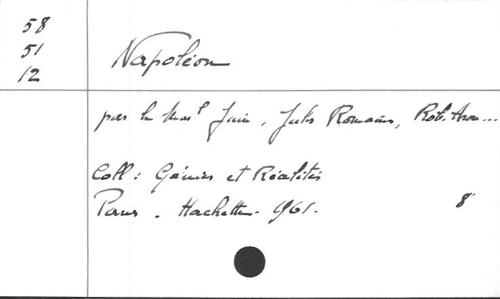 58
51
12
Napoléon
par le Mar<sup>l</sup> Juin, Jules Romains, Rob. Aron...
Coll: Génies et Réalités
Paris. Hachette. 1961.
8°